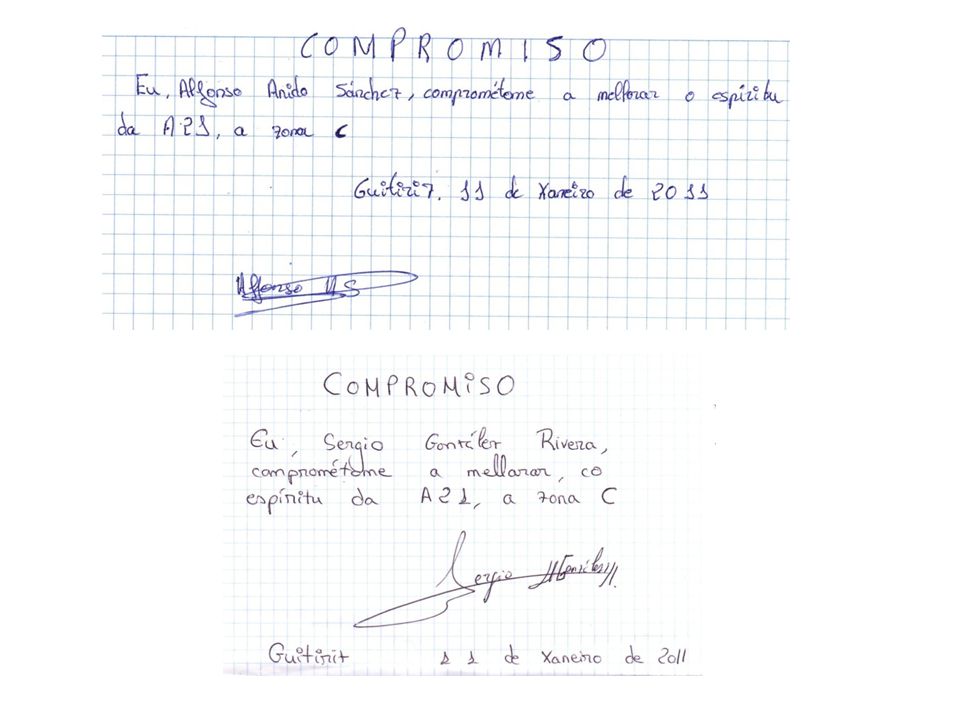 COMPROMISO
Eu, Alfonso Anido Sánchez, comprométome a mellorar o espíritu
da A21, a zona C
Guitiriz, 11 de Xaneiro de 2011
Alfonso A S
COMPROMISO
Eu, Sergio González Rivera,
comprométome a mellorar, co
espíritu da A21, a zona C
Sergio González
Guitiriz 11 de Xaneiro de 2011